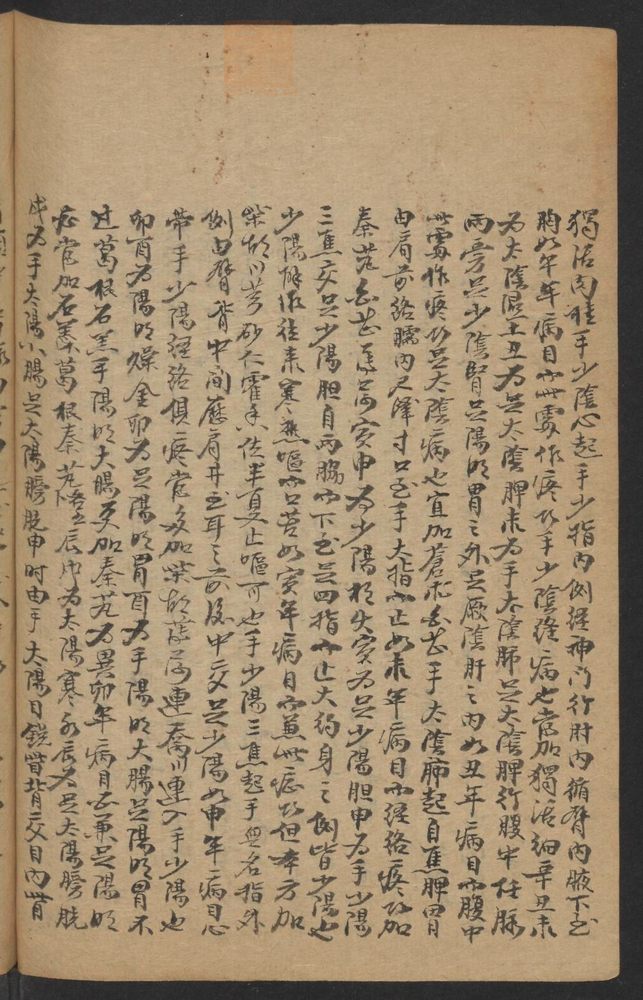 獨活肉桂手少陰心起手少指內側經神門行肘內循臂內腋下至
胸如午年病目亦無處作疼以手少陰經病也宜加獨活細辛丑未
為太陰濕土丑為足太陰脾未為手太陰肺足太陰脾行腹中任脈
兩旁足少陰腎足陽明胃之外足厥陰肝之內如丑年病目亦腹中
無處作疼以足太陰病也宜加蒼朮白芷手太陰肺起自焦脾胃
由肩前絡臑內尺澤寸口至手大指而止如未年病目亦經絡疼加
秦艽白芷寅申為少陽相火寅為足少陽胆申為手少陽
三焦交足少陽胆自兩脇而下至足四指而止大約身之側皆少陽也
少陽癥作往來寒熱嘔而口苦如寅年病目而兼此症以但本方加
柴胡川芎砂仁霍香佐半夏止嘔可也手少陽三焦起手無名指外
側由臂背中間應肩井至耳之前後中交足少陽如申年病目心
帶手少陽經絡俱疼當多加柴胡薄荷連喬川連入手少陽也
卯酉為陽明燥金卯為足陽明胃酉為手陽明大腸足陽明胃不
过葛根石羔手陽明大腸更加秦艽為異卯年病目若兼足陽明
症當加石羔葛根秦艽辰戌為太陽寒水辰為足太陽膀胱
戌為手太陽小腸足太陽膀胱申時由手太陽目銳眥背交目內眥